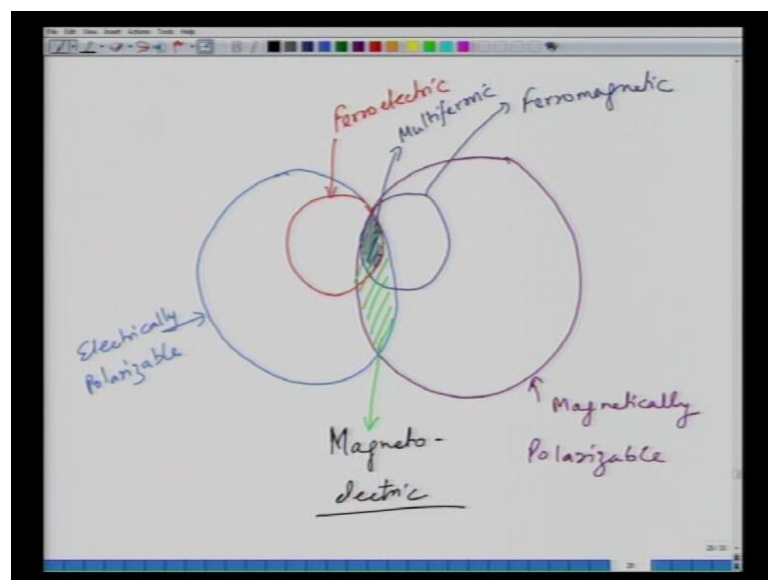 File Edit View Insert Actions Tools Help
Ferroelectric
Multiferroic
Ferromagnetic
Electrically
Polarizable
Magnetically
Polarizable
Magneto-
electric